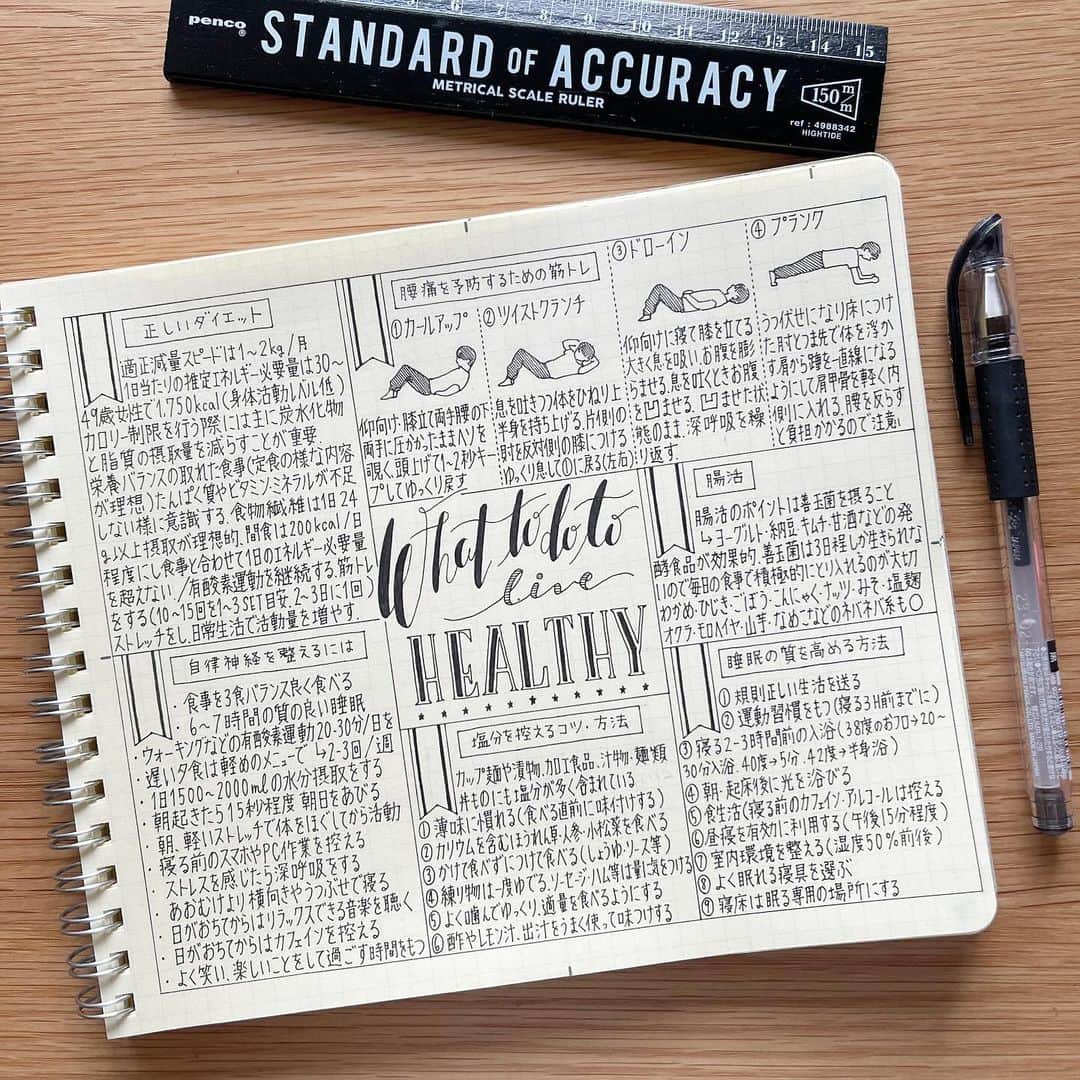 penco®
6 7 8 9 10 11 12 13 14 15
STANDARD OF ACCURACY
METRICAL SCALE RULER
150 m/m
ref : 4988342
HIGHTIDE
正しいダイエット
適正減量スピードは1〜2kg/月
1日当たりの推定エネルギー必要量は30〜
49歳女性で1.750kcal(身体活動レベル低)
カロリー制限を行う際には主に炭水化物
と脂質の摂取量を減らすことが重要.
栄養バランスの取れた食事(定食の様な内容
が理想)たんぱく質やビタミン・ミネラルが不足
しない様に意識する.食物繊維は1日24
g以上摂取が理想的.間食は200kcal/日
程度にし食事と合わせて1日のエネルギー必要量
を超えない./有酸素運動を継続する.筋トレ
をする(10〜15回を1〜3SET目安.2〜3日に1回)
ストレッチをし.日常生活で活動量を増やす.
腰痛を予防するための筋トレ
①カールアップ
仰向け.膝立て両手腰の下
両手に圧かかったままヘソを
覗く.頭上げて1〜2秒キー
プしてゆっくり戻す
②ツイストクランチ
息を吐きつつ体をひねり上
半身を持ち上げる.片側の
肘を反対側の膝につける
ゆっくり息して①に戻る(左右)
③ドローイン
仰向けに寝て膝を立てる
大きく息を吸い.お腹を膨
らませる.息を吐くときお腹
を凹ませる.凹ませた状
態のまま.深呼吸を繰
り返す.
④プランク
うつ伏せになり床につけ
た肘とつま先で体を浮か
す.肩から踵を一直線になる
ようにして肩甲骨を軽く内
側に入れる.腰を反らす
と負担かかるので注意
What to do to
live
HEALTHY
腸活
腸活のポイントは善玉菌を摂ること
↳ヨーグルト・納豆・キムチ・甘酒などの発
酵食品が効果的.善玉菌は3日程しか生きられな
いので毎日の食事で積極的にとり入れるのが大切
わかめ・ひじき・ごぼう・こんにゃく・ナッツ・みそ・塩麹
オクラ・モロヘイヤ・山芋・なめこなどのネバネバ系も○
自律神経を整えるには
・食事を3食バランス良く食べる
・6〜7時間の質の良い睡眠
・ウォーキングなどの有酸素運動20-30分/日を
・遅い夕食は軽めのメニューで ↳2-3回/週
・1日1500〜2000mlの水分摂取をする
・朝起きたら15秒程度 朝日をあびる
・朝、軽いストレッチで体をほぐしてから活動
・寝る前のスマホやPC作業を控える
・ストレスを感じたら深呼吸をする
・あおむけより横向きやうつぶせで寝る
・日がおちてからはリラックスできる音楽を聴く
・日がおちてからはカフェインを控える
・よく笑い.楽しいことをして過ごす時間をもつ
塩分を控えるコツ・方法
カップ麺や漬物.加工食品.汁物・麺類
丼ものにも塩分が多く含まれている
①薄味に慣れる(食べる直前に味付けする)
②カリウムを含むほうれん草.人参.小松菜を食べる
③かけて食べずにつけて食べる(しょうゆ.ソース等)
④練り物は一度ゆでる.ソーセージ・ハム等は量に気をつける
⑤よく噛んでゆっくり.適量を食べるようにする
⑥酢やレモン汁.出汁をうまく使って味つけする
睡眠の質を高める方法
①規則正しい生活を送る
②運動習慣をもつ(寝る3H前までに)
③寝る2-3時間前の入浴(38度のおフロ→20〜
30分入浴.40度→5分.42度→半身浴)
④朝・起床後に光を浴びる
⑤食生活(寝る前のカフェイン・アルコールは控える
⑥昼寝を有効に利用する(午後15分程度)
⑦室内環境を整える(湿度50%前後)
⑧よく眠れる寝具を選ぶ
⑨寝床は眠る専用の場所にする